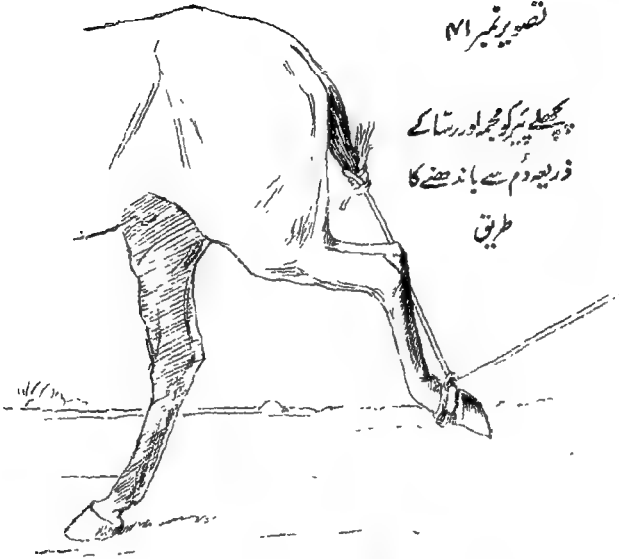 تصویر نمبر ۴۱
پچھلے پیر کو مجمہ اور رسّا کے
ذریعہ دُم سے باندھنے کا
طریق